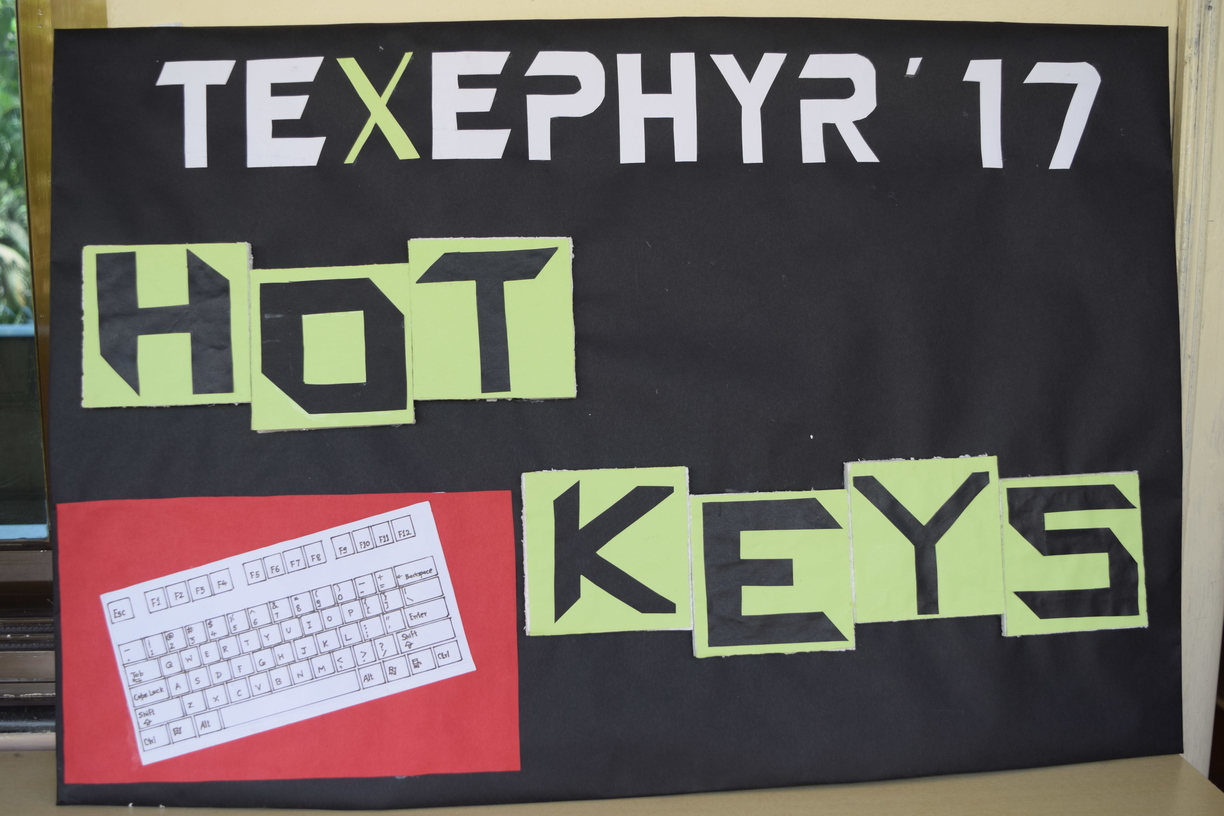 TEXEPHYR '17
HOT
KEYS
Esc F1 F2 F3 F4 F5 F6 F7 F8 F9 F10 F11 F12
~ ! @ # $ % ^ & * ( ) _ + Backspace
Tab Q W E R T Y U I O P { } \
Caps Lock A S D F G H J K L : " Enter
Shift Z X C V B N M < > ? Shift
Ctrl Alt Alt Ctrl